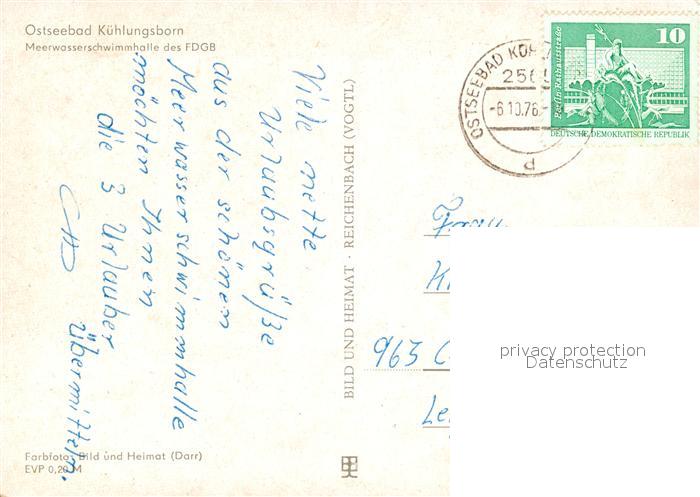 Ostseebad Kühlungsborn
Meerwasserschwimmhalle des FDGB
Viele nette
Urlaubsgrüße
aus der schönen
Meerwasserschwimmhalle
möchten Ihnen
die 3 Urlauber
übermitteln.
Farbfoto: Bild und Heimat (Darr)
EVP 0,20 M
BILD UND HEIMAT · REICHENBACH (VOGTL)
OSTSEEBAD KÜH
256
-6.10.76.-
P
10
Berlin, Rathausstraße
DEUTSCHE DEMOKRATISCHE REPUBLIK
Frau
963
privacy protection
Datenschutz